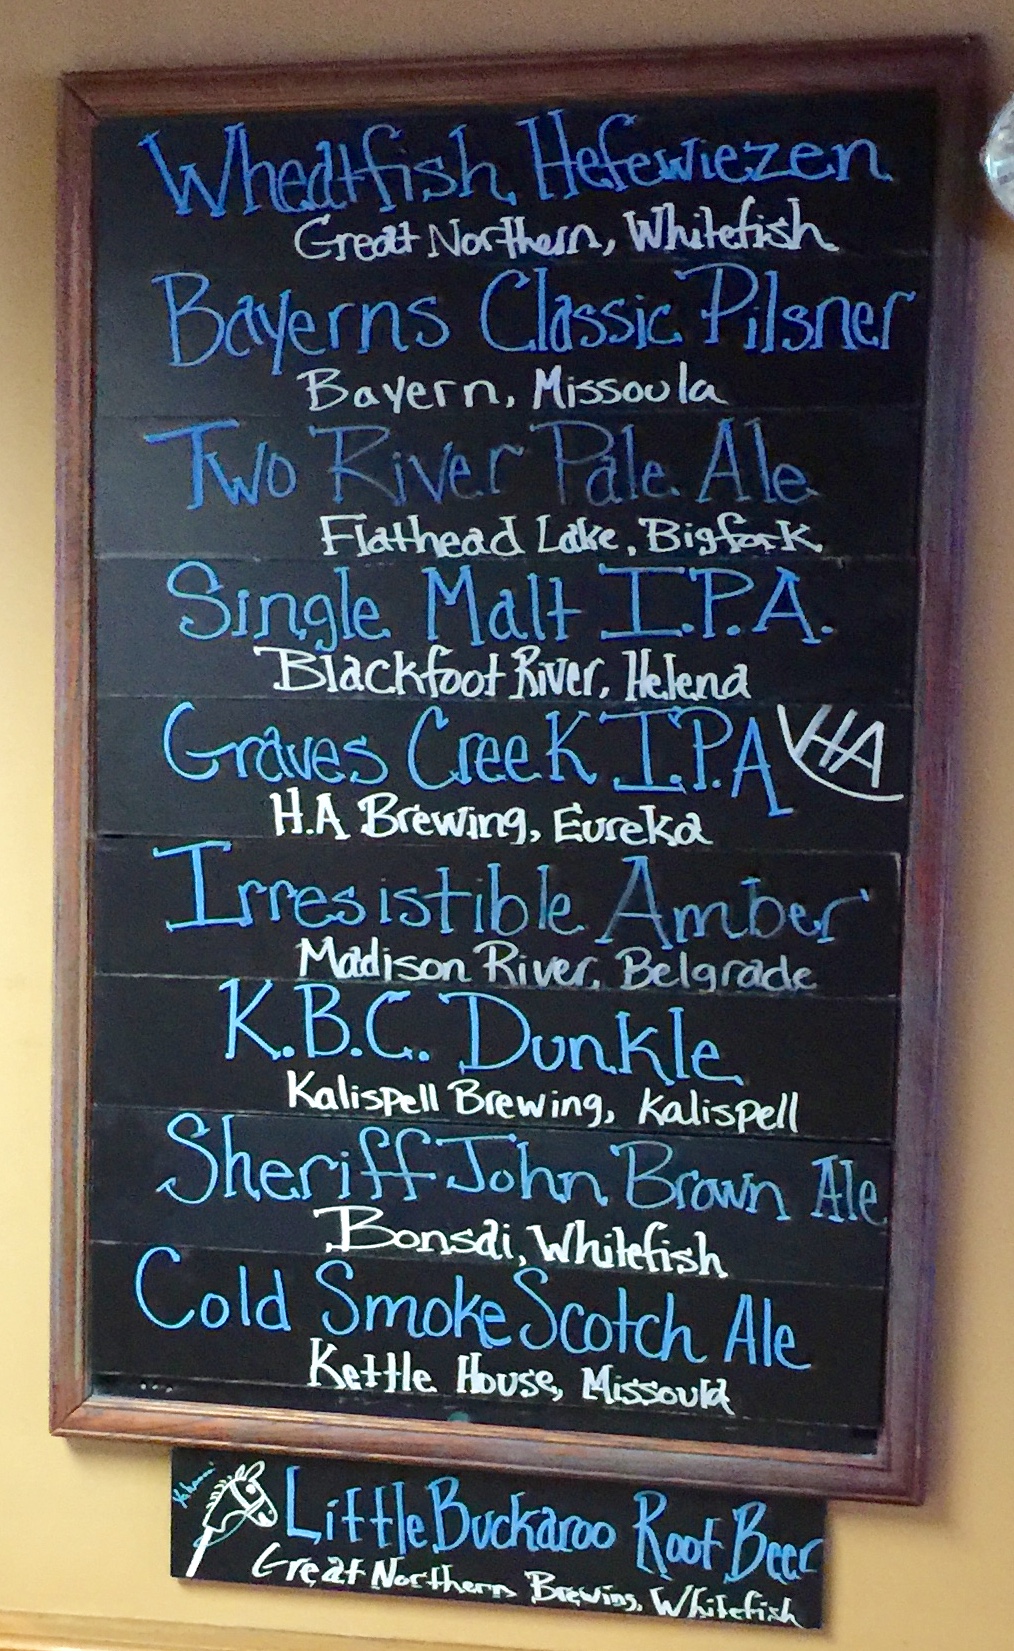 Wheatfish Hefewiezen
Great Northern, Whitefish
Bayerns Classic Pilsner
Bayern, Missoula
Two River Pale Ale
Flathead Lake, Bigfork
Single Malt I.P.A.
Blackfoot River, Helena
Graves Creek I.P.A HA
H.A Brewing, Eureka
Irresistible Amber
Madison River, Belgrade
K.B.C. Dunkle
Kalispell Brewing, Kalispell
Sheriff John Brown Ale
Bonsai, Whitefish
Cold Smoke Scotch Ale
Kettle House, Missoula
Little Buckaroo Root Beer
Great Northern Brewing, Whitefish